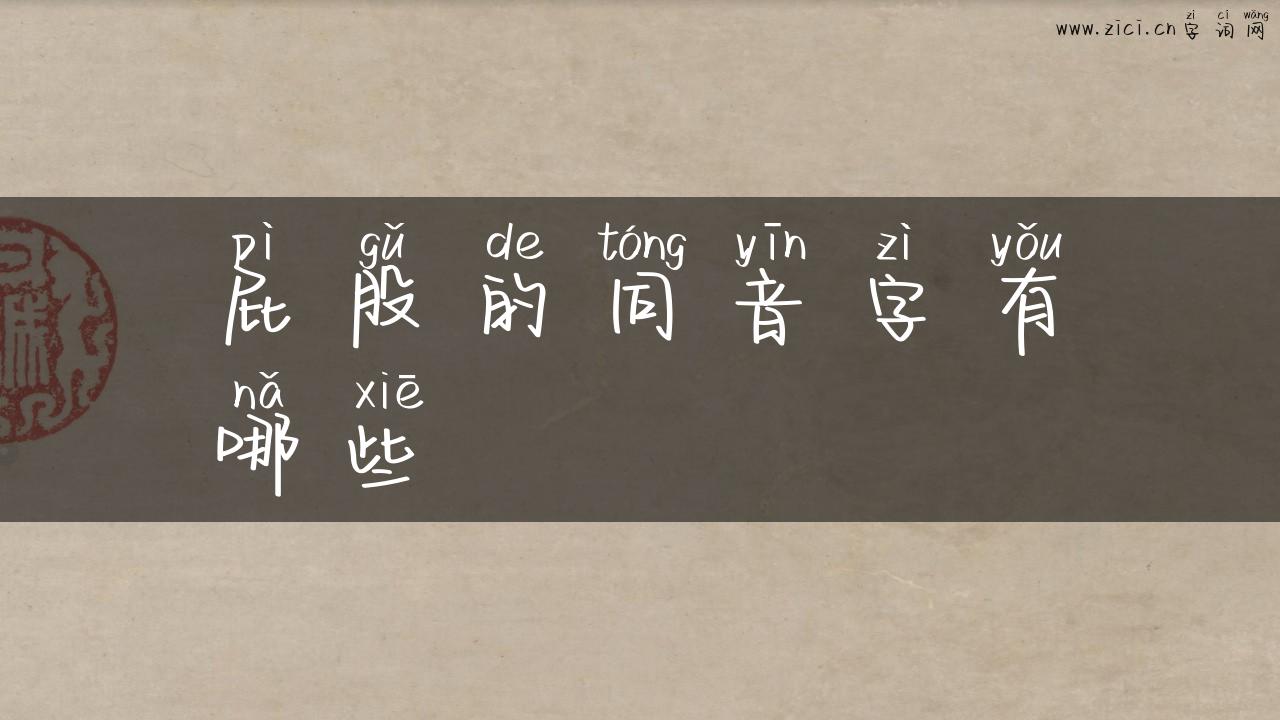 zì cí wǎng
www.zici.cn 字词网
pì gǔ de tóng yīn zì yǒu
屁股的同音字有
nǎ xiē
哪些